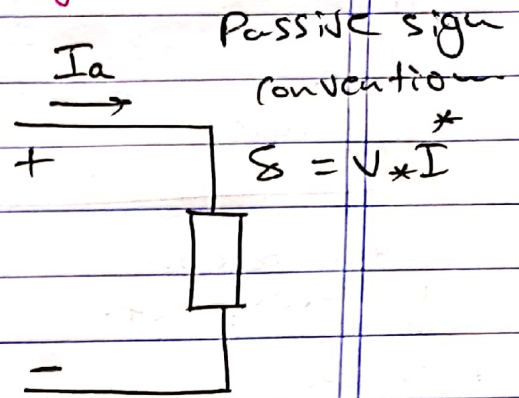 Passive sign
Ia
convention
*
+
S = V * I
-